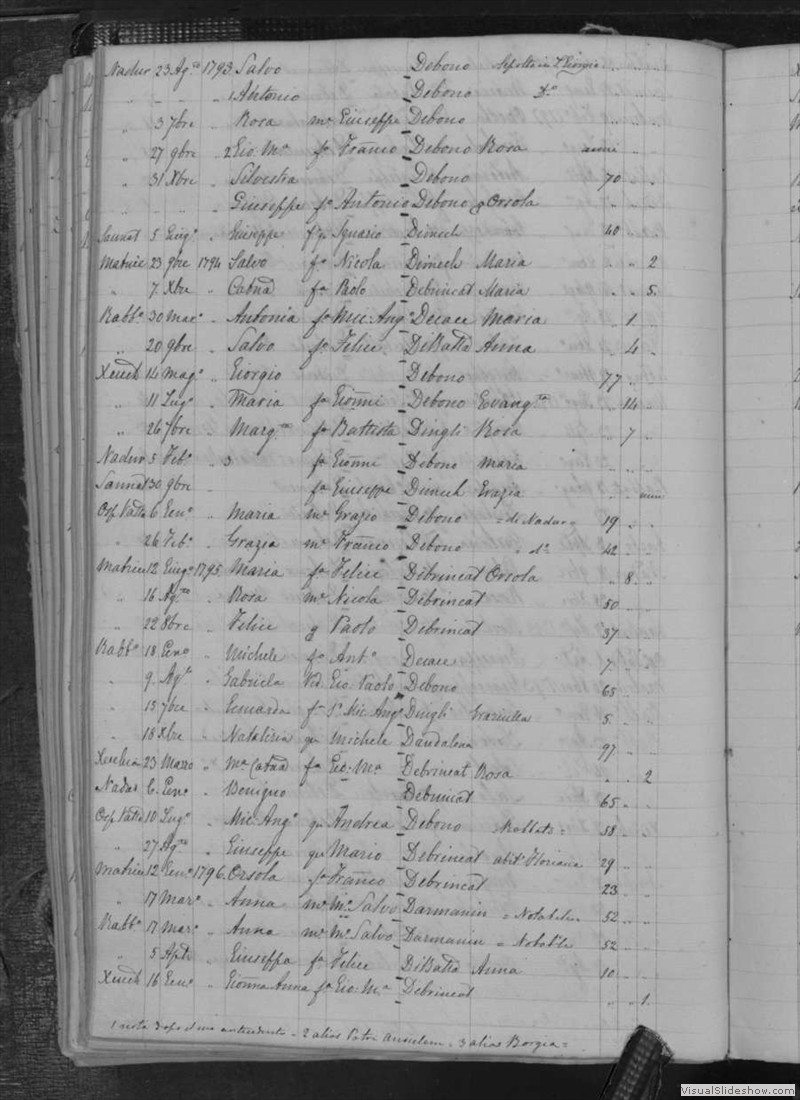 Nadur 23 Ag.to 1793 Salvo Debono Sepolto in S. Giorgio
" " " 1 Antonio Debono D.o
" 3 7bre " Rosa m.e Giuseppe Debono
" 27 9bre 2 Gio. M.a f.o Franco Debono Rosa anni
" 31 Xbre " Silvestra Debono 70
" " " Giuseppe f.o Antonio Debono e Orsola
Sannat 5 Giug.o " Giuseppe f. q. Ignazio Dimech 40
Matrice 23 9bre 1794 Salvo f.o Nicola Dimech Maria " " 2
" 7 Xbre " f.a Paolo Debrincat Maria " " 5
Rabb.o 30 Mar.o " Antonia f.a Mic. Ang.o Decace Maria " 1 "
" 20 9bre " Salvo f.o Felice DiBatta Anna " 4 "
Xeuch 14 Mag.o " Giorgio Debono 77
" 11 Lug.o " Maria f.a Gionni Debono Evang.ta " 14
" 26 7bre " Marg.ta f.a Battista Dingli Rosa 7
Nadur 5 Feb.o " 3 f.a Gionni Debono Maria
Sannat 30 9bre f.a Giuseppe Dimech Grazia
6 Gen.o " Maria m.e Grazio Debono = di Nadur = 19
" 26 Feb.o " Grazia m.e Franco Debono " d.o 42
Matrice 12 Giug.o 1795 Maria f.a Felice Debrincat Orsola " 8 "
" 16 Ag.to " Rosa m.e Nicola Debrincat 50
" 22 8bre " Felice q Paolo Debrincat 37
Rabb.o 18 Gen.o " Michele f.o Ant.o Decace 7
" 9 Ag.to " Gabriela Vid. Gio Paolo Debono 65
" 15 7bre " f.a Mic Ang.o Dingli Graziulla 5
" 18 Xbre " q.m Michele Dandalona 97
23 Marzo " M.a f.a Gio. M.a Debrincat Rosa " " 2
Nadur 6 Gen.o " Benigno Debrincat 65
10 Lug.o " Mic. Ang.o q.m Andrea Debono 58
" 27 Ag.to " Giuseppe q.m Mario Debrincat abit.e Floriana 29
Matrice 12 Gen.o 1796 Orsola f.a Franco Debrincat 23
" 17 Mar.o " Anna m.e M.o Salvo Darmanin = 52
Rabb.o 17 Mar.o " Anna m.e M.o Salvo Darmanin = 52
" 5 Aple " Giuseppa f.a Felice DiBatta Anna 10
Xeuch 16 Gen.o " Gionna Anna f.a Gio. M.a Debrincat " " 1
1 nota dopo = 2 alias = 3 alias Borgia =
VisualSlideshow.com